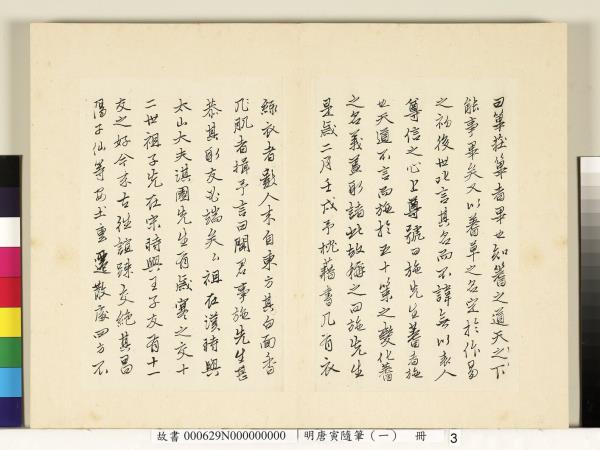 曰筮筮者畢也知蓍之道天之下
能事畢矣又以蓍草之名定於作易
之初後世皆言其名而不諱無以表人
尊信之心上尊號曰施先生蓍者施
也天道不言而施於五十策之變化蓍
之名義蓋取諸此故稱之曰施先生
是歲二月壬戌予忱藉書几有衣
綠衣者數人來自東方其白面香
肌者揖予言曰聞君事施先生甚
恭其取友必端矣公祖在漢時與
太山大夫淇園先生有歲寒之交十
二世祖子先在宋時與王子友有十一
交之好今求古誼踈交絕其昌
陽子仙等
散處四方不
故書 000629N000000000 明唐寅隨筆(一) 冊 3